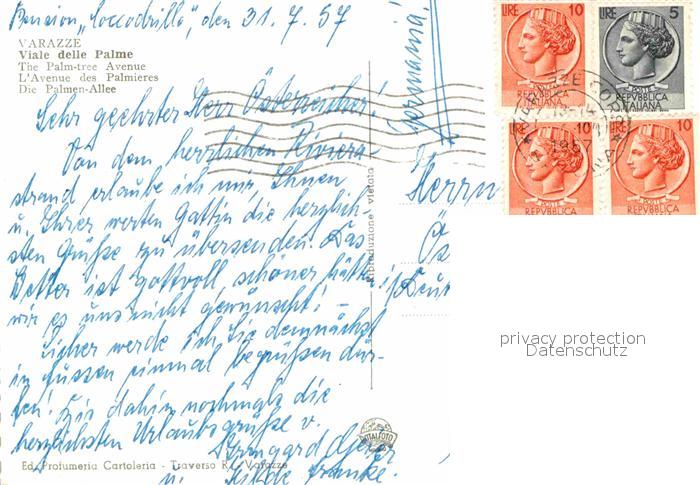 Pension „Coccodrillo", den 31.7.57
VARAZZE
Viale delle Palme
The Palm-tree Avenue
L'Avenue des Palmieres
Die Palmen-Allee
Sehr geehrter Herr Österreicher!
Von dem herrlichen Riviera-
strand erlaube ich mir, Ihnen
u. Ihrer werten Gattin die herzlich-
sten Grüße zu übersenden. Das
Wetter ist gottvoll, schöner hätten
wir es uns nicht gewünscht! –
Sicher werde ich Sie demnächst
in Füssen einmal begrüßen dür-
fen! Bis dahin nochmals die
herzlichsten Urlaubsgrüße v.
Irmgard
u. Hilde Franke.
Ed. Profumeria Cartoleria - Traverso R. - Varazze
Riproduzione vietata
ITALFOTO
Germania!
Herrn
Ös
Deut
LIRE 10
POSTE
REPVBBLICA
ITALIANA
LIRE 5
POSTE
REPVBBLICA
ITALIANA
LIRE 10
POSTE
REPVBBLICA
LIRE 10
POSTE
REPVBBLICA
privacy protection
Datenschutz